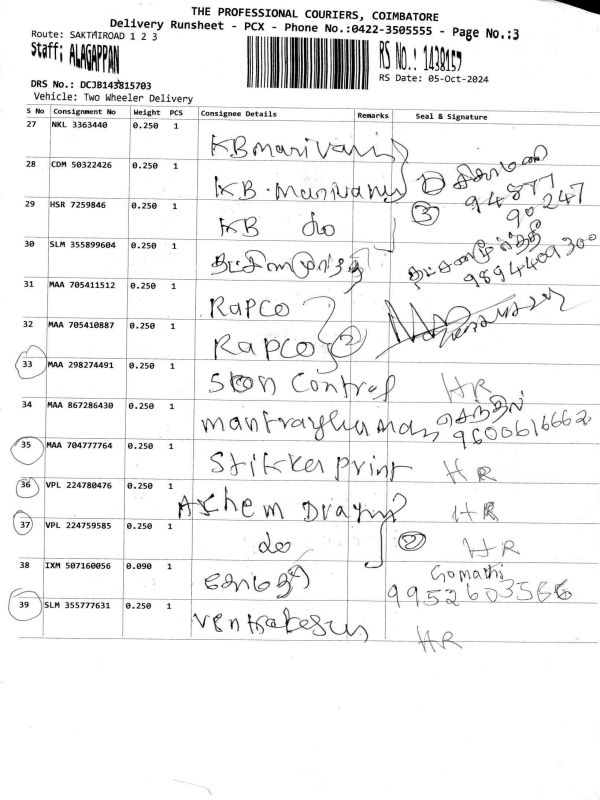 THE PROFESSIONAL COURIERS, COIMBATORE
Delivery Runsheet - PCX - Phone No.:0422-3505555 - Page No.:3
Route: SAKTHIROAD 1 2 3
Staff; ALAGAPPAN
RS NO.: 1438157
RS Date: 05-Oct-2024
DRS No.: DCJB143815703
Vehicle: Two Wheeler Delivery
S No Consignment No Weight PCS Consignee Details Remarks Seal & Signature
27 NKL 3363440 0.250 1 KB marivani
28 CDM 50322426 0.250 1 KB. Marivany சிகாமணி 94877
29 HSR 7259846 0.250 1 KB do ③ 90247
30 SLM 355899604 0.250 1 தட்சிணாமூர்த்தி தட்சணமூர்த்தி 9894409300
31 MAA 705411512 0.250 1 Rapco
32 MAA 705410887 0.250 1 Rapco ②
33 MAA 298274491 0.250 1 Control HR
34 MAA 867286430 0.250 1 செந்தில் 9600616662
35 MAA 704777764 0.250 1 Stikker print HR
36 VPL 224780476 0.250 1 HR
37 VPL 224759585 0.250 1 do ② HR
38 IXM 507160056 0.090 1 கோமதி Gomathi 9952603566
39 SLM 355777631 0.250 1 HR